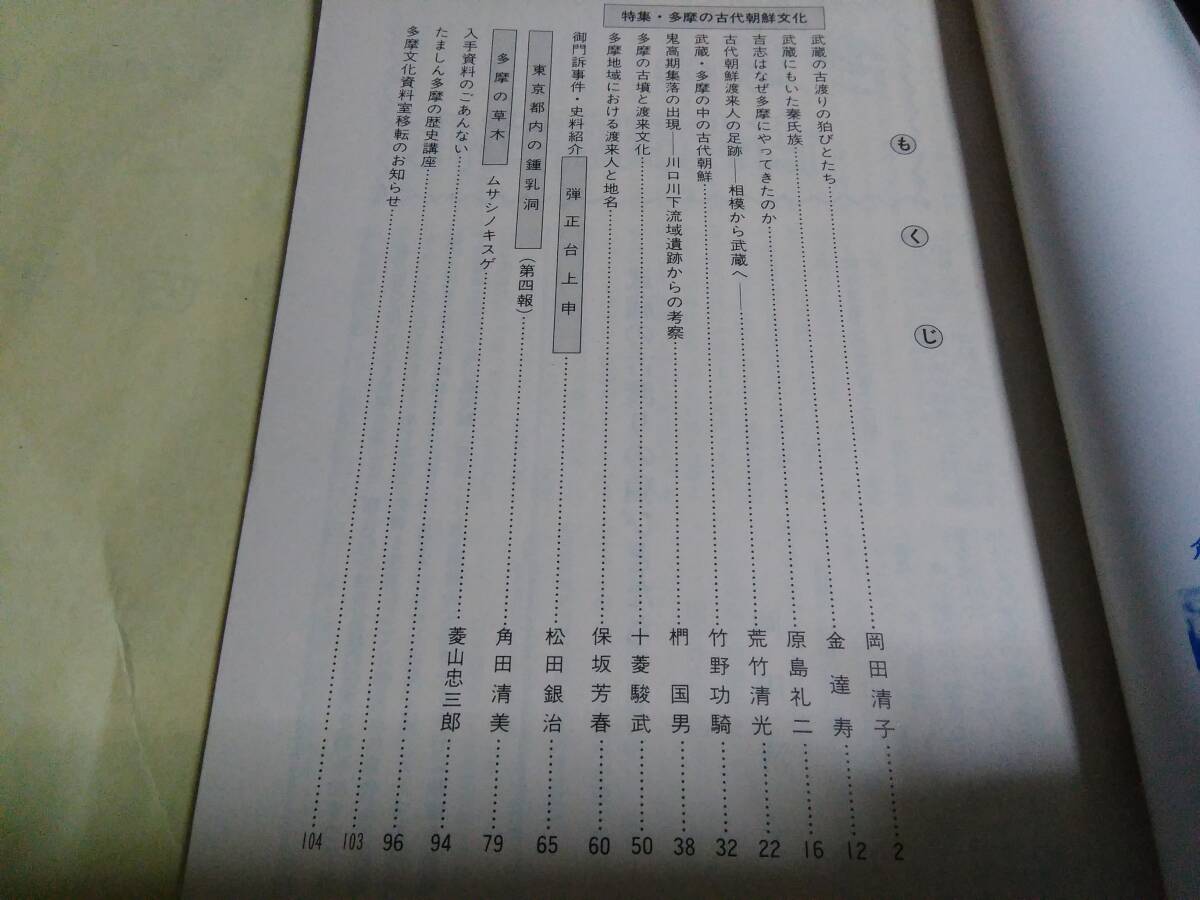 もくじ
特集・多摩の古代朝鮮文化
武蔵の古渡りの狛びとたち……岡田清子……2
武蔵にもいた秦氏族……金達寿……12
吉志はなぜ多摩にやってきたのか……原島礼二……16
古代朝鮮渡来人の足跡――相模から武蔵へ――……荒竹清光……22
武蔵・多摩の中の古代朝鮮……竹野功騎……32
鬼高期集落の出現――川口川下流域遺跡からの考察……椚国男……38
多摩の古墳と渡来文化……十菱駿武……50
多摩地域における渡来人と地名……保坂芳春……60
御門訴事件・史料紹介 弾正台上申……松田銀治……65
東京都内の鍾乳洞(第四報)……角田清美……79
多摩の草木 ムサシノキスゲ……菱山忠三郎……94
入手資料のごあんない……96
たましん多摩の歴史講座……103
多摩文化資料室移転のお知らせ……104